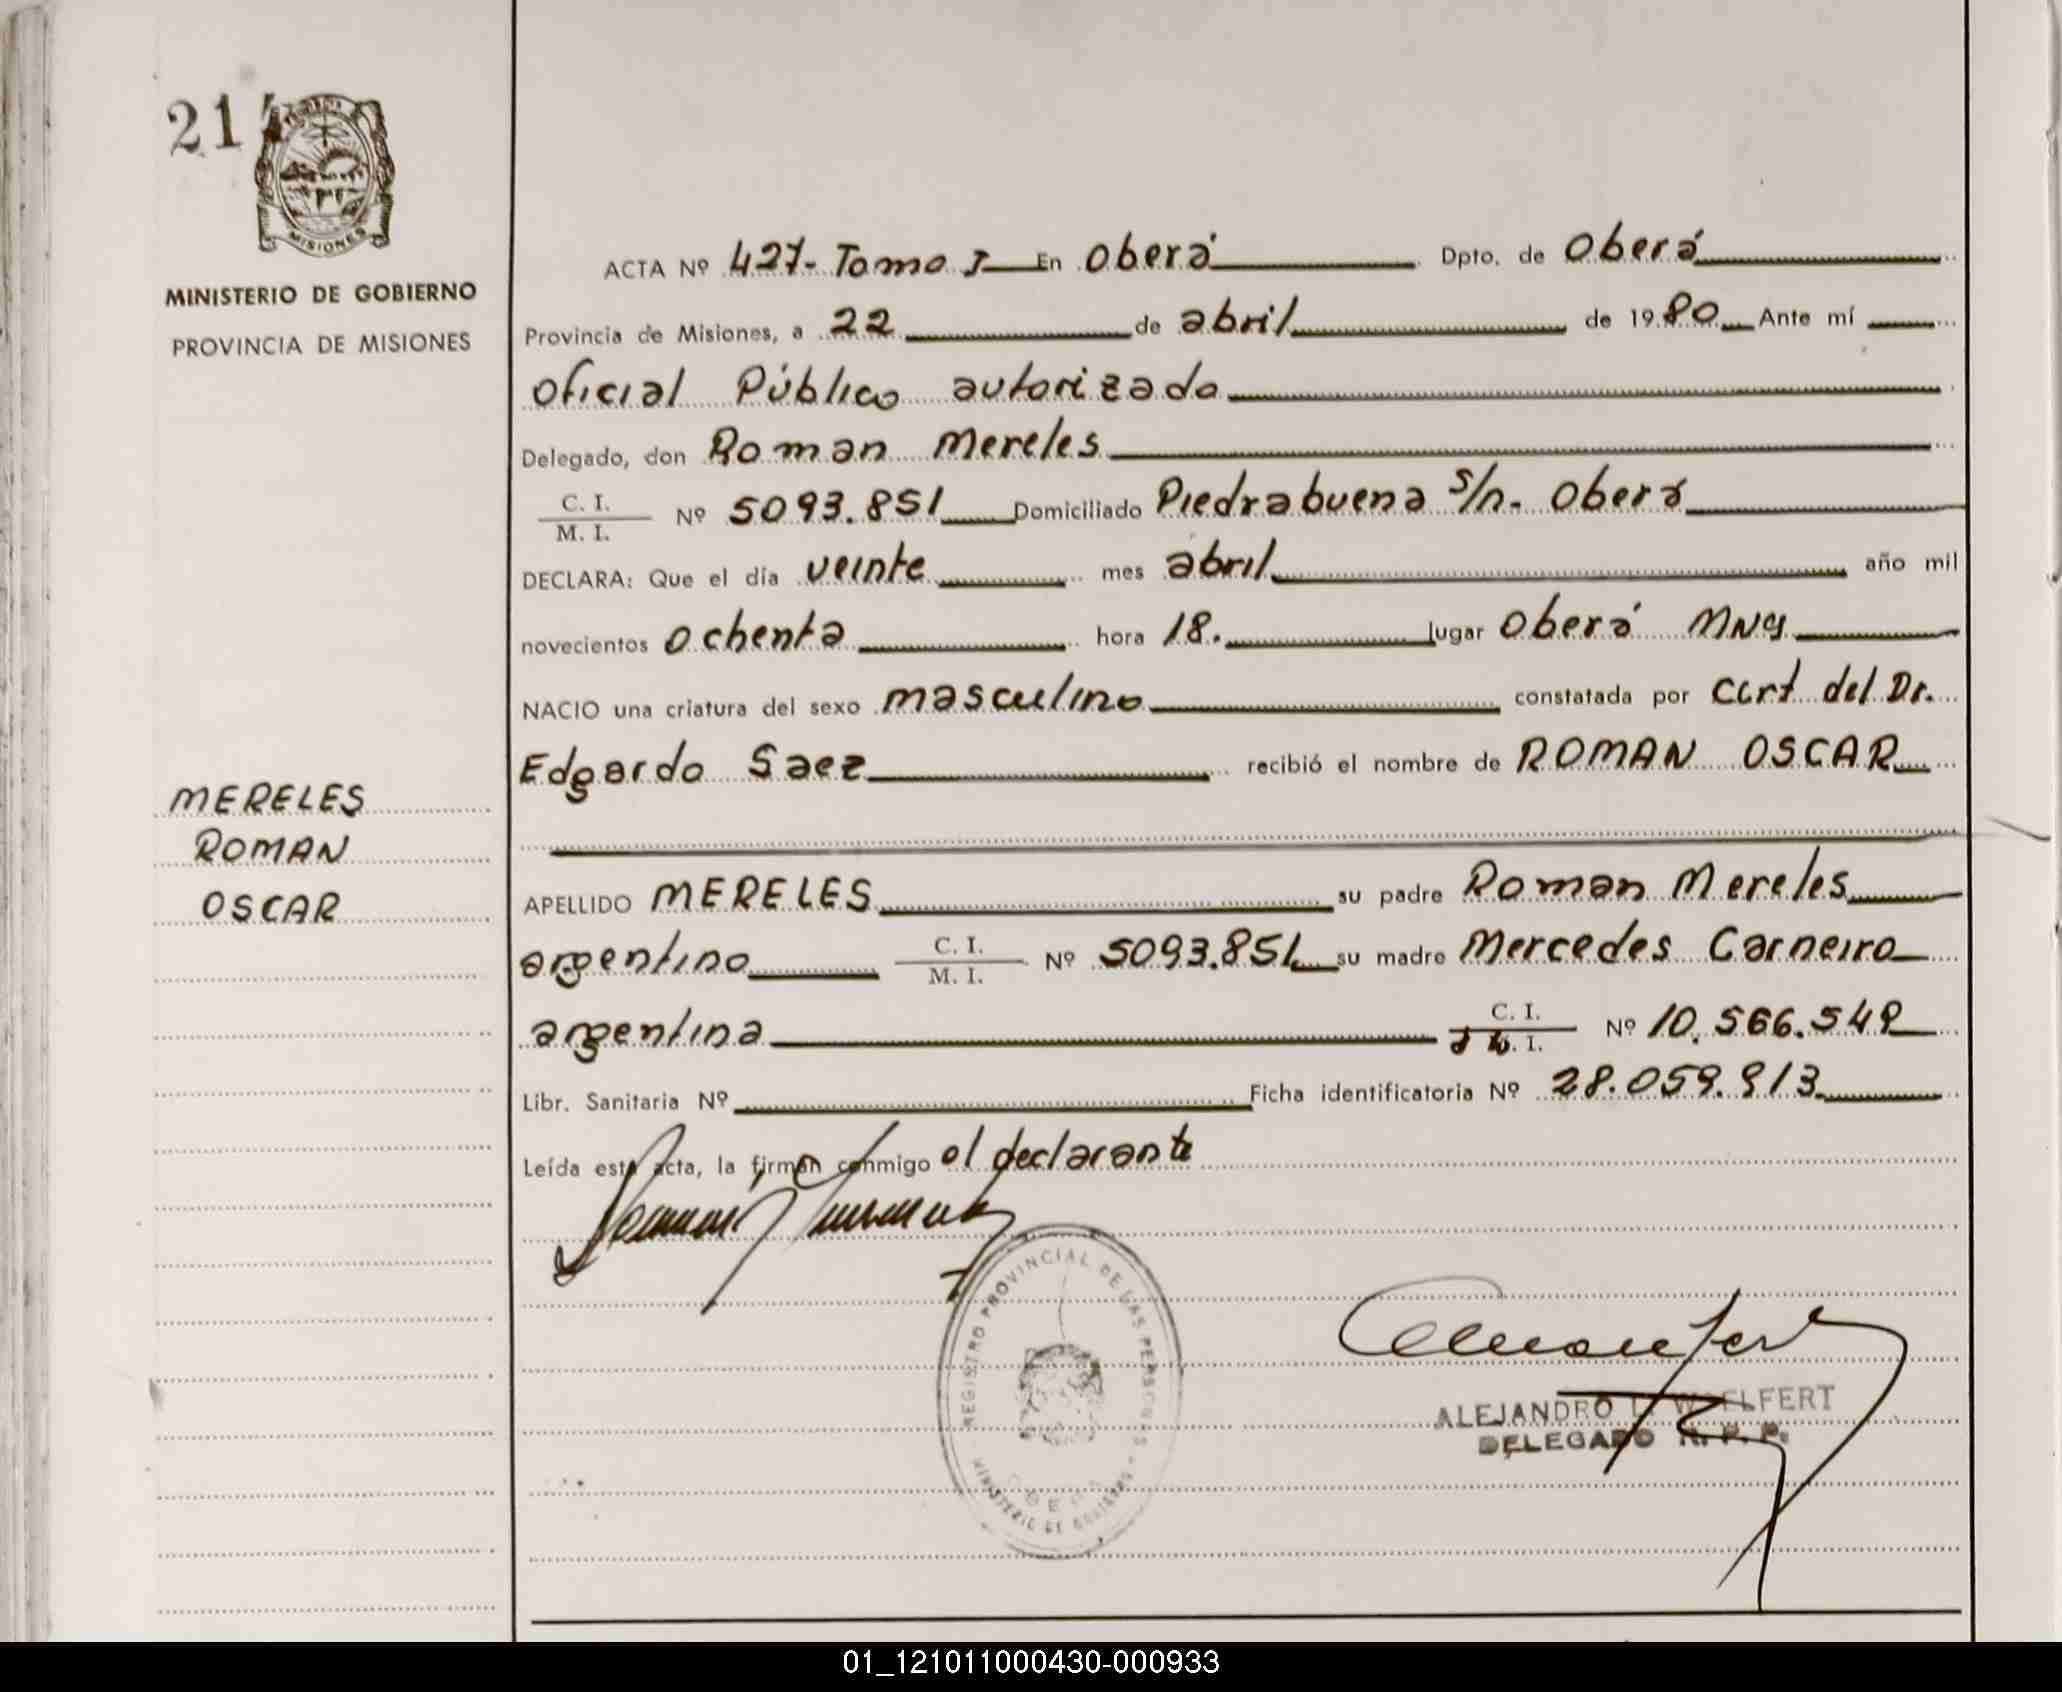 21
MISIONES
MINISTERIO DE GOBIERNO
PROVINCIA DE MISIONES
MERELES
ROMAN
OSCAR
ACTA Nº 427- Tomo I En Oberá Dpto. de Oberá
Provincia de Misiones, a 22 de abril de 1980 Ante mí
Oficial Público autorizado
Delegado, don Roman Mereles
C. I. / M. I. Nº 5093.851 Domiciliado Piedrabuena s/n. Oberá
DECLARA: Que el día veinte mes abril año mil
novecientos ochenta hora 18. lugar Oberá Mnes
NACIO una criatura del sexo masculino constatada por Cert del Dr.
Edgardo Saez recibió el nombre de ROMAN OSCAR
APELLIDO MERELES su padre Roman Mereles
argentino C. I. / M. I. Nº 5093.851 su madre Mercedes Carneiro
argentina C. I. / . I. Nº 10.566.548
Libr. Sanitaria Nº Ficha identificatoria Nº 28.059.913
Leída esta acta, la firman conmigo el declarante
REGISTRO PROVINCIAL DE LAS PERSONAS - MINISTERIO DE GOBIERNO
ALEJANDRO WOELFERT
DELEGADO R. P. P.
01_121011000430-000933